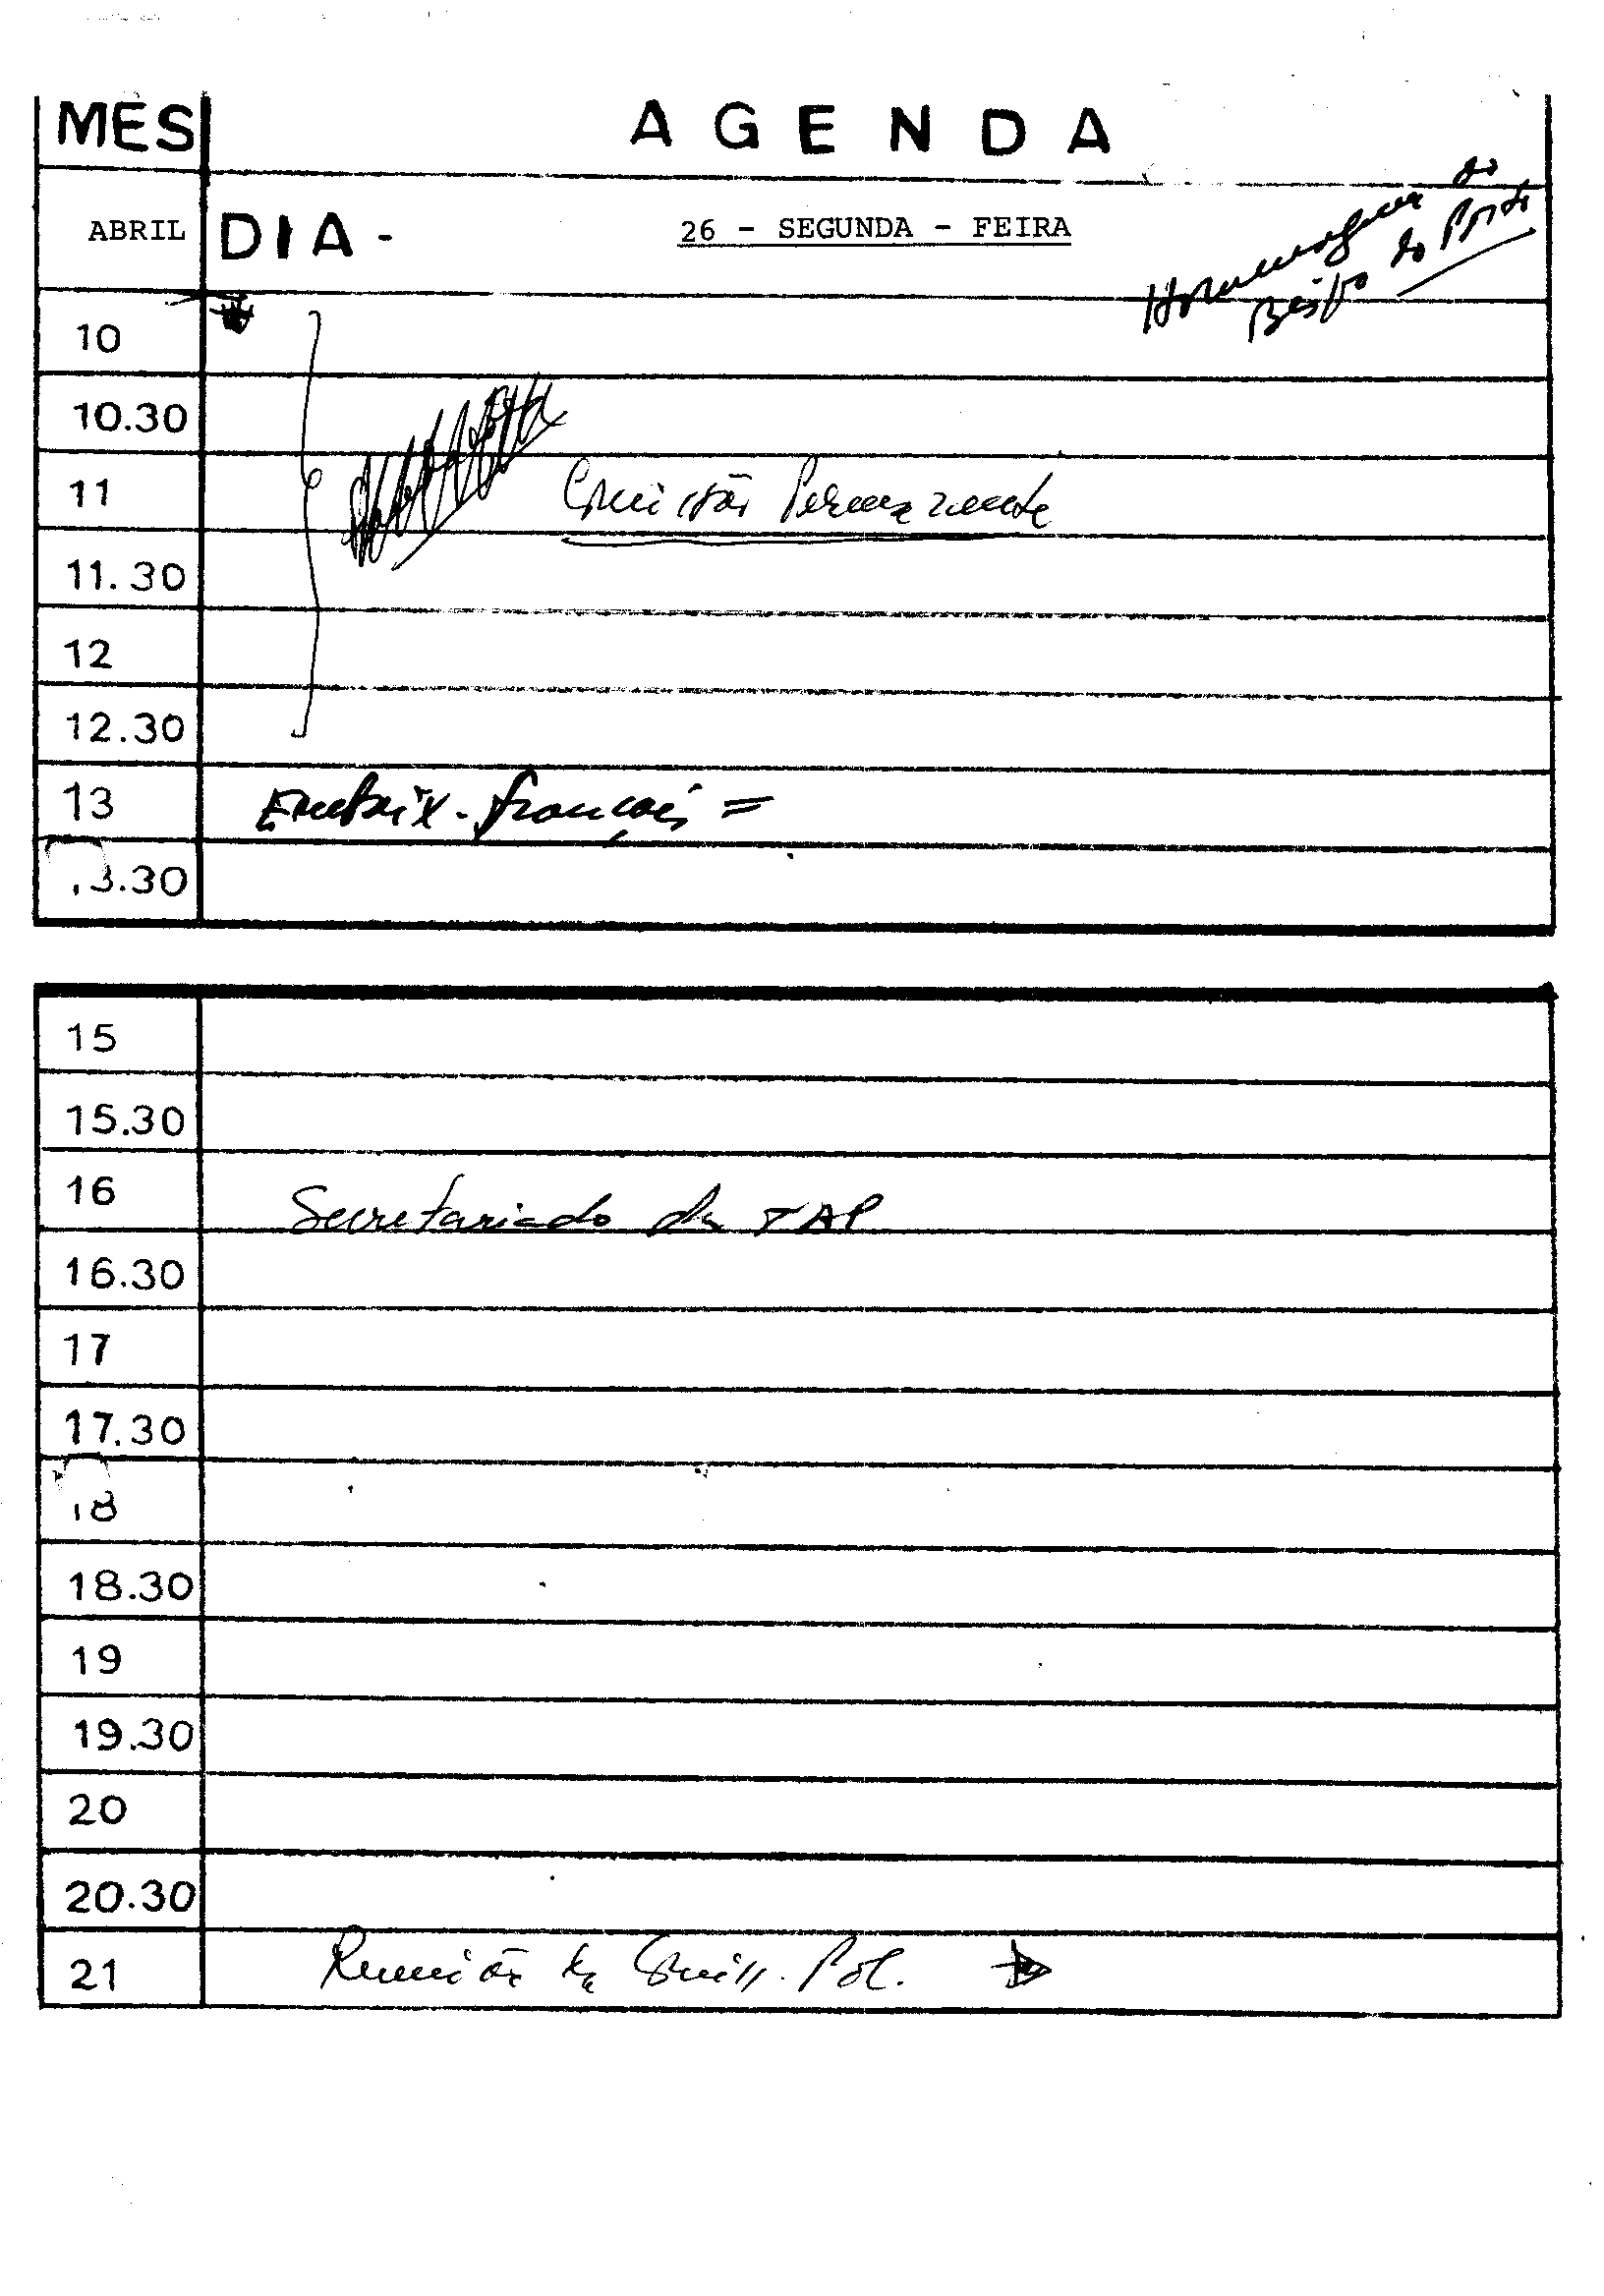 MES AGENDA
ABRIL DIA - 26 - SEGUNDA - FEIRA
Homenagem ao
Bispo do Porto
10
10.30
11 Comissão Permanente
11.30
12
12.30
13 Embaix. français =
13.30
15
15.30
16 Secretariado da TAP
16.30
17
17.30
18
18.30
19
19.30
20
20.30
21 Reunião da Comiss. Pol.